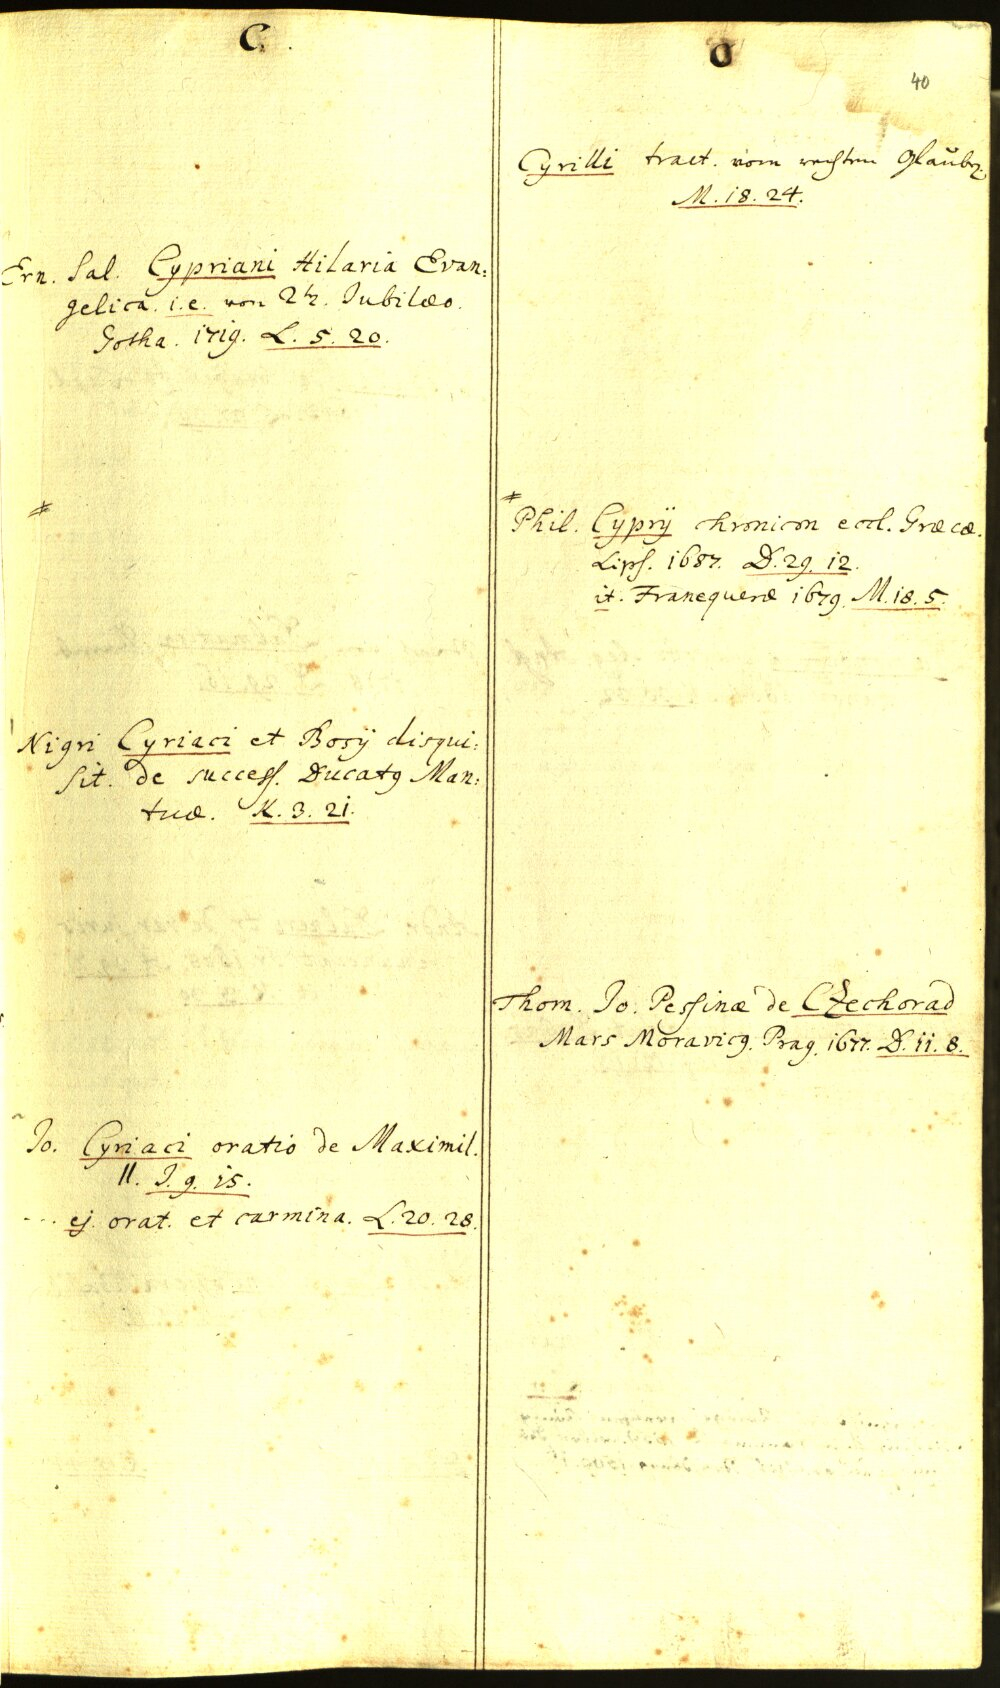 C.
Ern. Sal. Cypriani Hilaria Evan:
gelica. i.e. von 2tn. Jubilæo.
Gotha. 1719. L. 5. 20.
Nigri Cyriaci et Bosij disqui:
sit. de success. Ducatg Man:
tuæ. K. 3. 21.
Jo. Cyriaci oratio de Maximil.
II. J. 9. 15.
... ej. orat. et carmina. L. 20. 28.
O
40
Cyrilli tract. vom rechten Glauben
M. 18. 24.
Phil. Cyprij chronicon eccl. Græcæ.
Lips. 1687. D. 29. 12.
it. Franequeræ 1679. M. 18. 5.
Thom. Jo. Pessinæ de CZechorad
Mars Moravicg. Prag. 1677. D. 11. 8.